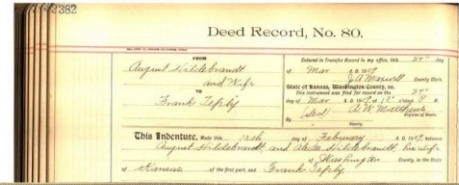 382
Deed Record, No. 80.
FROM
August Hildebrandt
and Wife
TO
Frank Lepby
Entered in Transfer Record in my office, this 29" day
of Mar A.D. 1909
J.A. Maxwell County Clerk.
State of Kansas, Washington County, ss.
This instrument was filed for record on the 29"
day of Mar A.D. 1909
(Seal) A.W. Matthews
Register of Deeds.
By
Deputy.
This Indenture, Made this 12th day of February A.D. 1909 between
August Hildebrandt, and Hildebrandt, his wife
of Washington County, in the State
of Kansas of the first part, and Frank Lepby